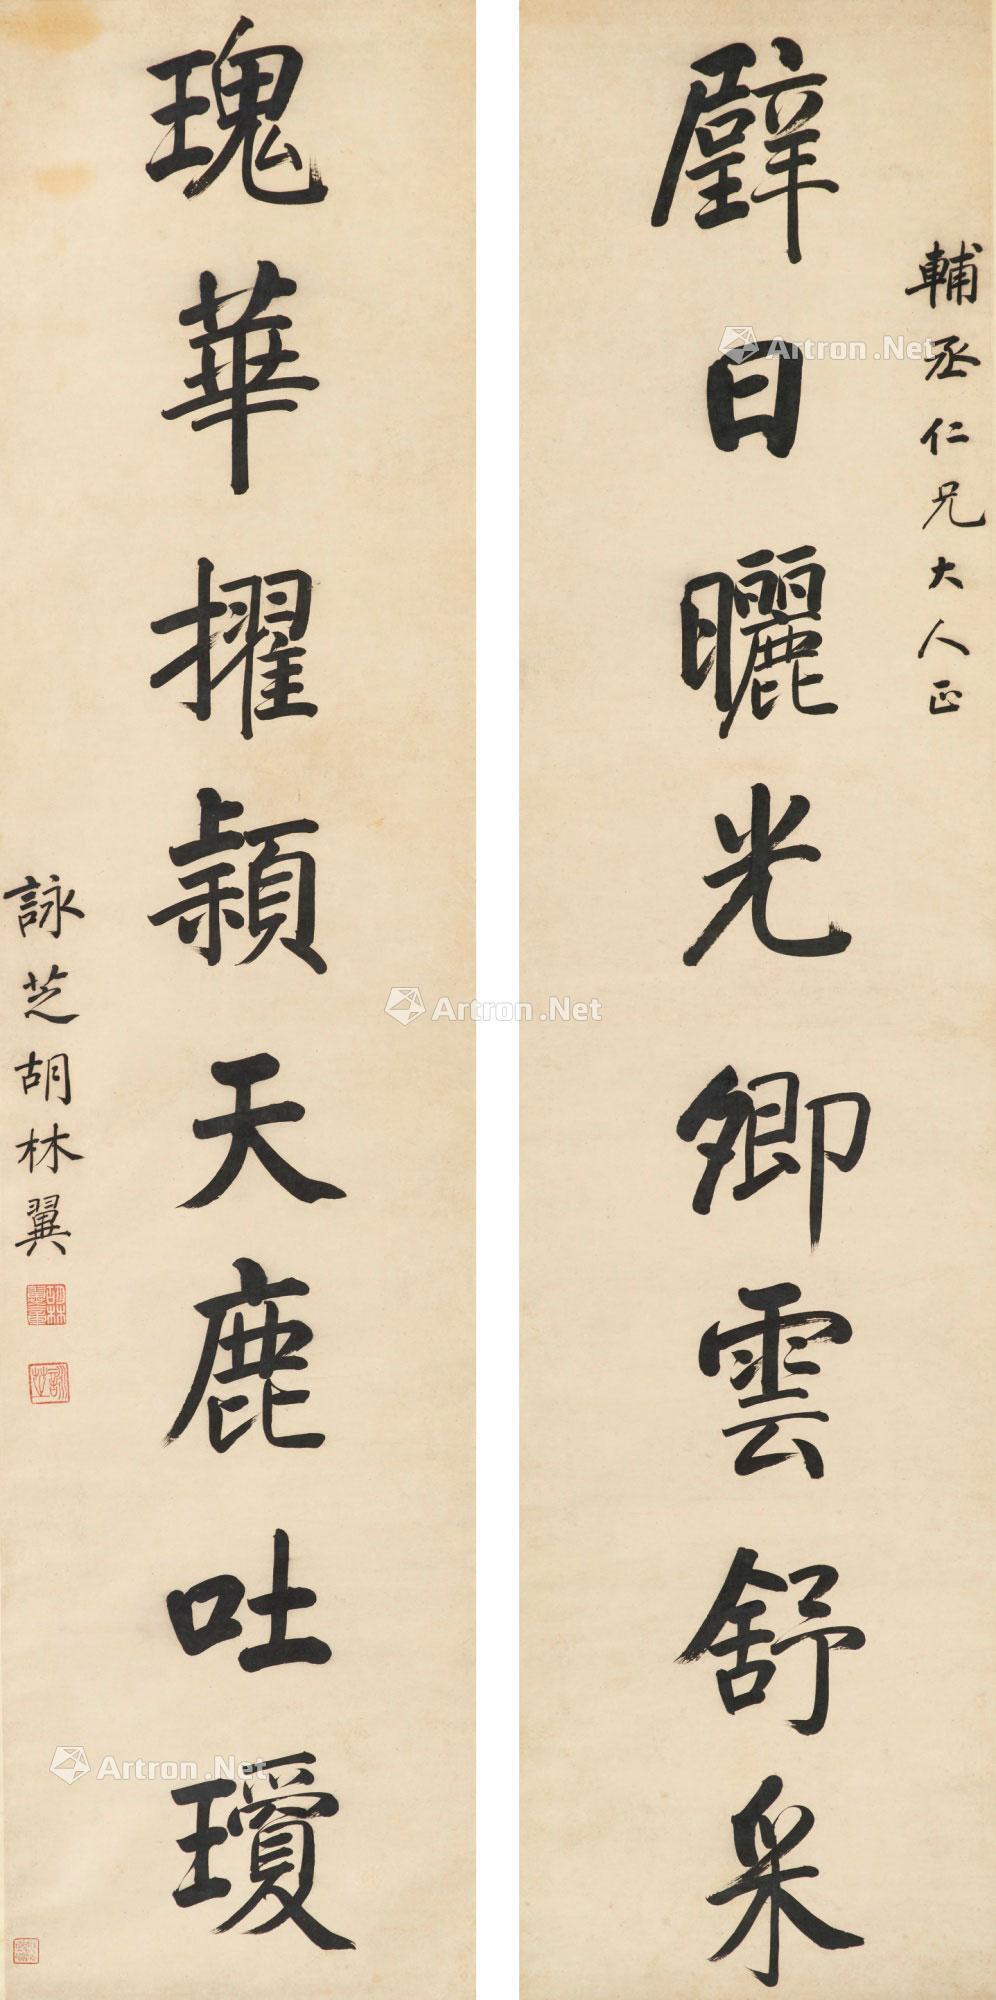 輔丞仁兄大人正
璧日曬光卿雲舒采
瑰華擢穎天鹿吐瓊
詠芝胡林翼
Artron.Net
Artron.Net
Artron.Net